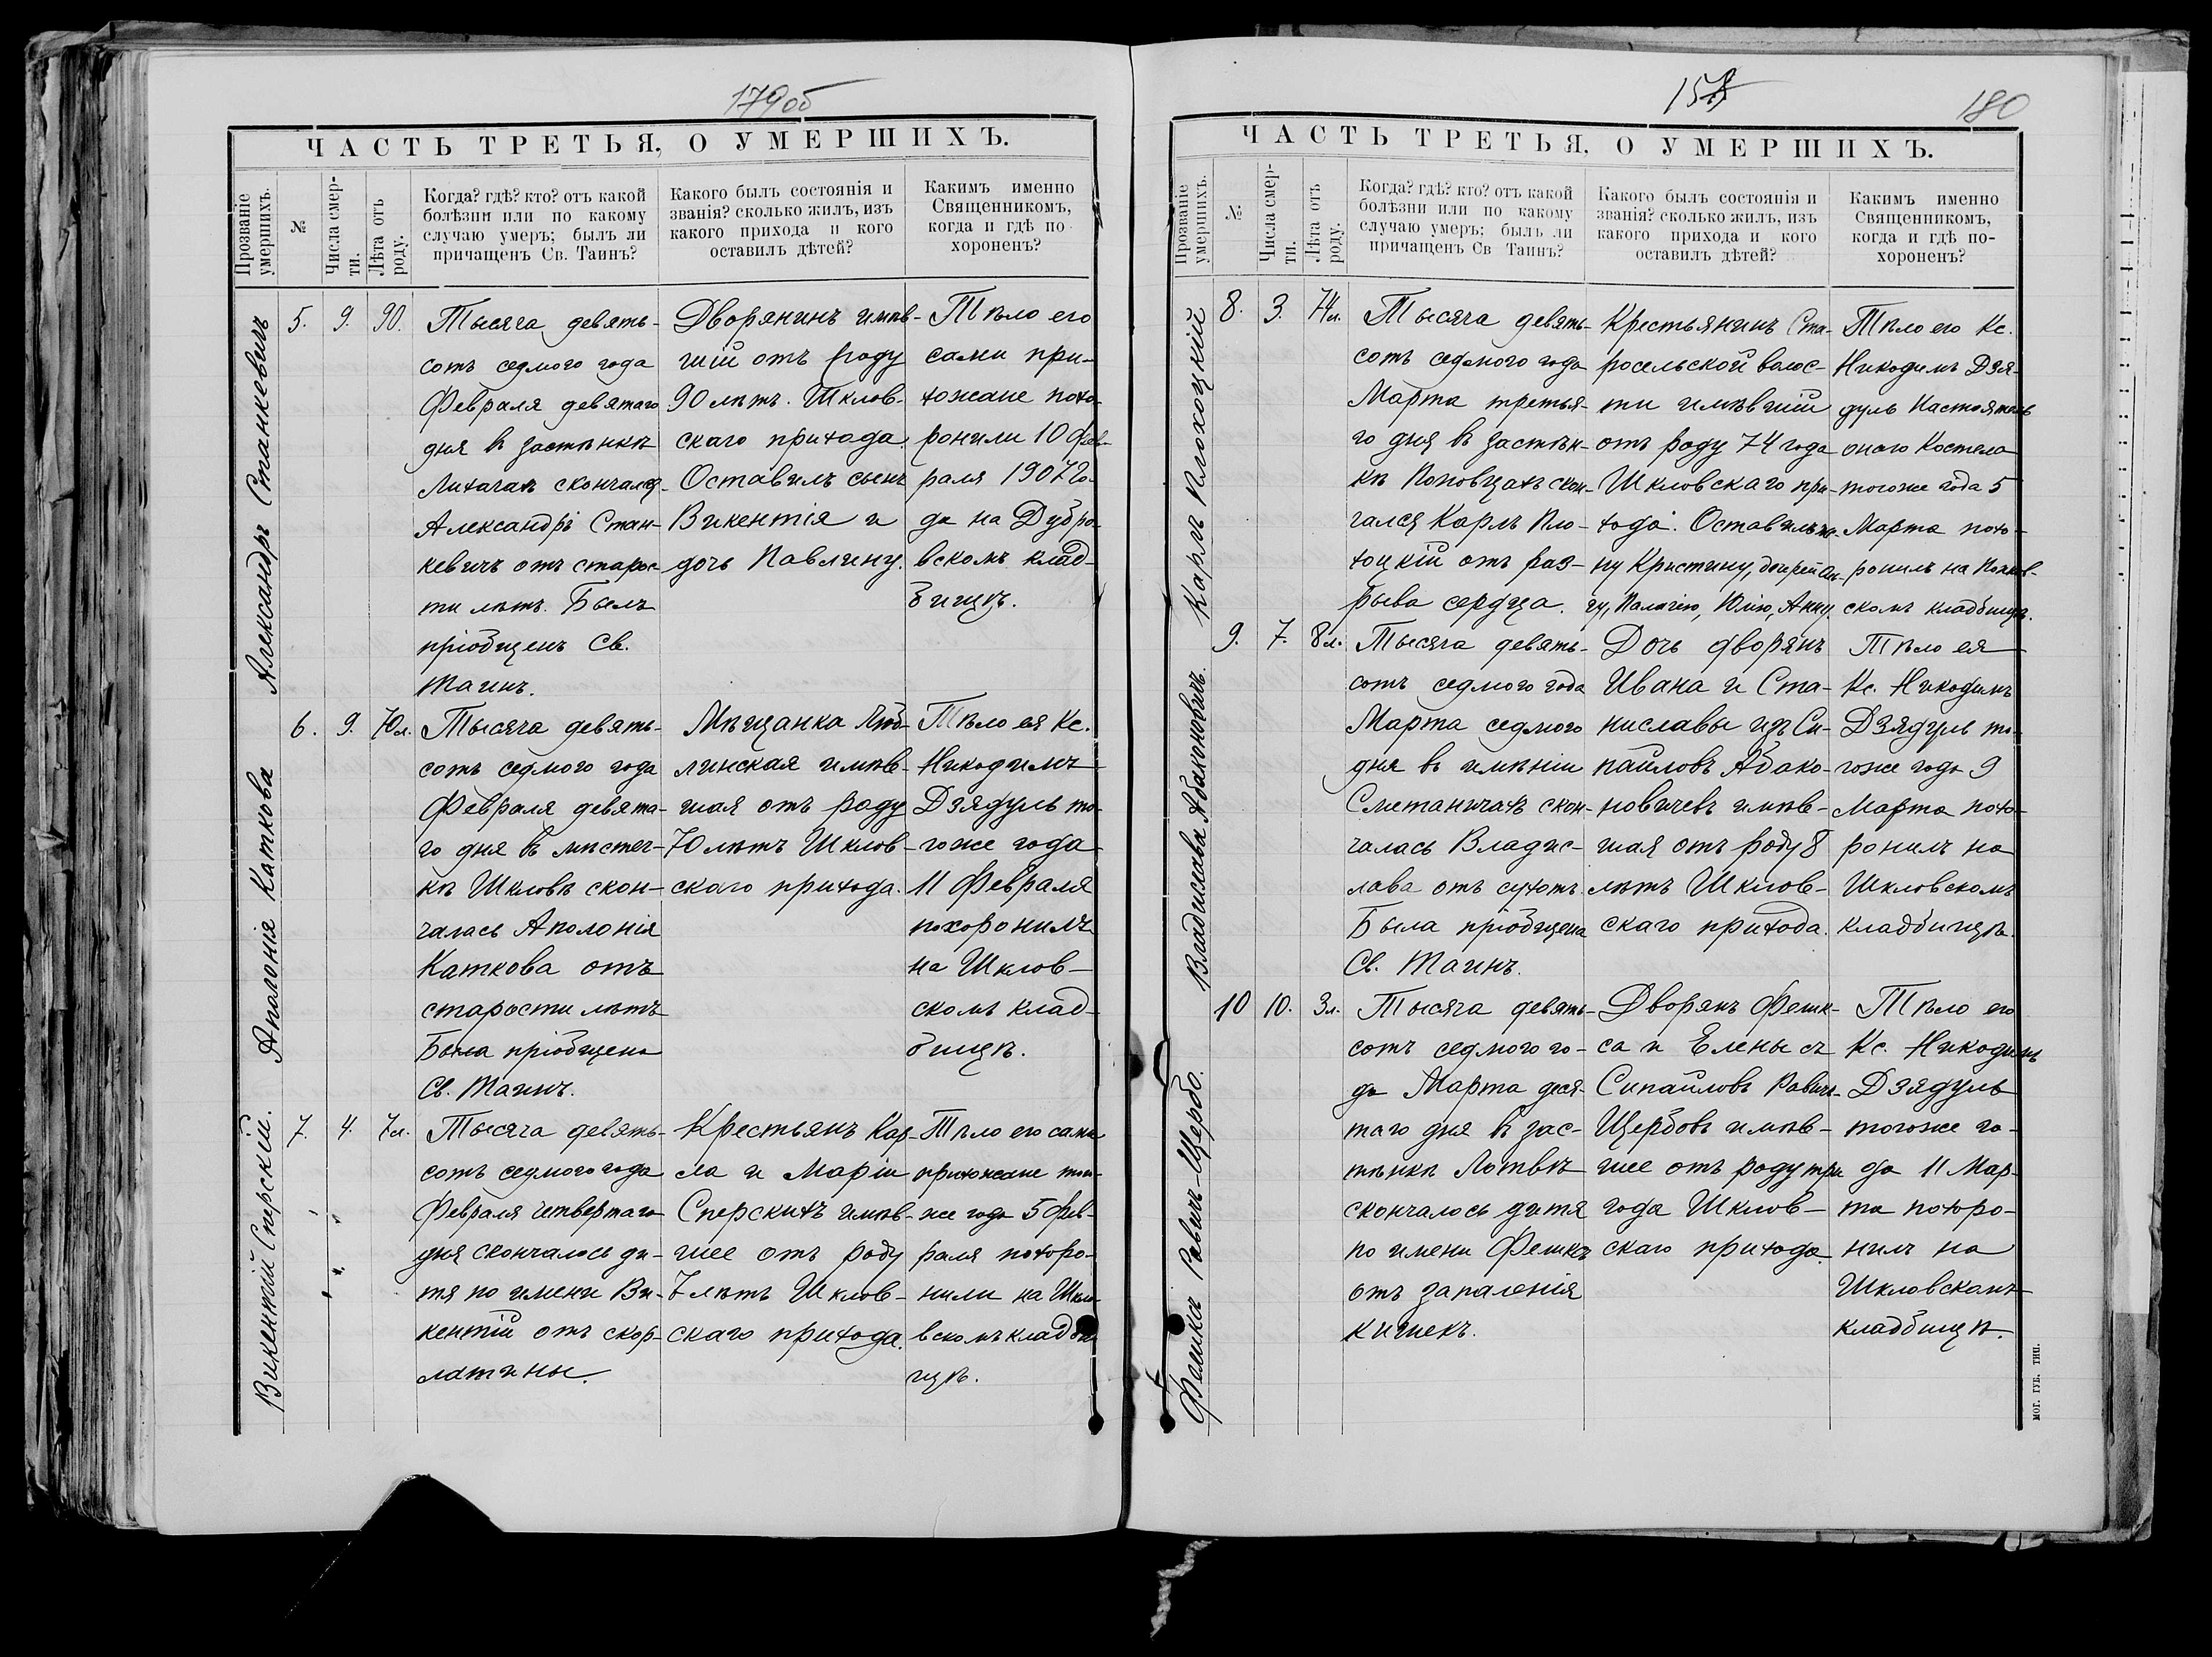 179об
ЧАСТЬ ТРЕТЬЯ, О УМЕРШИХЪ.
Прозваніе умершихъ.
№
Числа смер-
ти.
Лѣта отъ
роду.
Когда? гдѣ? кто? отъ какой
болѣзни или по какому
случаю умеръ; былъ ли
причащенъ Св. Таинъ?
Какого былъ состоянія и
званія? сколько жилъ, изъ
какого прихода и кого
оставилъ дѣтей?
Какимъ именно
Священникомъ,
когда и гдѣ по-
хороненъ?
Александръ Станкевичъ
5.
9.
90.
Тысяча девять-
сотъ седмого года
Февраля девятаго
дня въ застѣнкѣ
Литачах скончался
Александръ Стан-
кевичъ отъ старос-
ти лѣтъ. Былъ
пріобщенъ Св.
Таинъ.
Дворянинъ имѣв-
шій отъ роду
90 лѣтъ. Шклов-
скаго прихода.
Оставилъ сына
Викентія и
дочь Павлину.
Тѣло его
сами при-
хожане похо-
ронили 10 фев-
раля 1907 го-
да на Дубро-
вскомъ клад-
бищѣ.
Аполонія Каткова
6.
9.
70л.
Тысяча девять-
сотъ седмого года
Февраля девята-
го дня въ мѣстеч-
кѣ Шкловѣ скон-
чалась Аполонія
Каткова отъ
старости лѣтъ
Была пріобщена
Св. Таинъ.
Мѣщанка Люб-
линская имѣв-
шая отъ роду
70 лѣтъ Шклов-
скаго прихода.
Тѣло ея Кс.
Никодимъ
Дзядуль то-
гоже года
11 Февраля
похоронилъ
на Шклов-
скомъ клад-
бищѣ.
Викентій Сперскій.
7.
4.
7л.
Тысяча девять-
сотъ седмого года
Февраля четвертаго
дня скончалось ди-
тя по имени Ви-
кентій отъ скор-
латины.
Крестьянъ Кар-
ла и Маріи
Сперскихъ имѣв-
шее отъ роду
7 лѣтъ Шклов-
скаго прихода.
Тѣло его сами
прихожане того-
же года 5 Фев-
раля похоро-
нили на Шкло-
вскомъ кладби-
щѣ.
15
180
ЧАСТЬ ТРЕТЬЯ, О УМЕРШИХЪ.
Прозваніе умершихъ.
№
Числа смер-
ти.
Лѣта отъ
роду.
Когда? гдѣ? кто? отъ какой
болѣзни или по какому
случаю умеръ; былъ ли
причащенъ Св Таинъ?
Какого былъ состоянія и
званія? сколько жилъ, изъ
какого прихода и кого
оставилъ дѣтей?
Какимъ именно
Священникомъ,
когда и гдѣ по-
хороненъ?
Карлъ Плохоцкій
8.
3.
74л.
Тысяча девять-
сотъ седмого года
Марта третья-
го дня въ застѣн-
кѣ Поповцахъ скон-
чался Карлъ Пло-
хоцкій отъ раз-
рыва сердца.
Крестьянинъ Ста-
росельской волос-
ти имѣвшій
отъ роду 74 года
Шкловскаго при-
хода. Оставилъ же-
ну Кристину, дочерей
Палагію, Юлію, Анну.
Тѣло его Кс.
Никодимъ Дзя-
дуль Настоятель
онаго Костела
тогоже года 5
Марта похо-
ронилъ на
скомъ кладбищѣ.
Владислава Абакановичъ.
9.
7.
8л.
Тысяча девять-
сотъ седмого года
Марта седмого
дня въ имѣніи
Сметаничахъ скон-
чалась Владис-
лава отъ сухотъ.
Была пріобщена
Св. Таинъ.
Дочь дворянъ
Ивана и Ста-
ниславы изъ Си-
пайловъ Абако-
новичевъ имѣв-
шая отъ роду 8
лѣтъ Шклов-
скаго прихода.
Тѣло ея
Кс. Никодимъ
Дзядуль то-
гоже года 9
Марта похо-
ронилъ на
Шкловскомъ
кладбищѣ.
Феликсъ Равичъ-Щербо.
10
10.
3л.
Тысяча девять-
сотъ седмого го-
да Марта деся-
таго дня въ зас-
тѣнкѣ Лотвѣ
скончалось дитя
по имени Феликсъ
отъ запаленія
кишекъ.
Дворянъ Фелик-
са и Елены съ
Сипайловъ Равич-
Щербовъ имѣв-
шее отъ роду три
года Шклов-
скаго прихода.
Тѣло его
Кс. Никодимъ
Дзядуль
тогоже го-
да 11 Мар-
та похоро-
нилъ на
Шкловскомъ
кладбищѣ.
МОГ. ГУБ. ТИП.